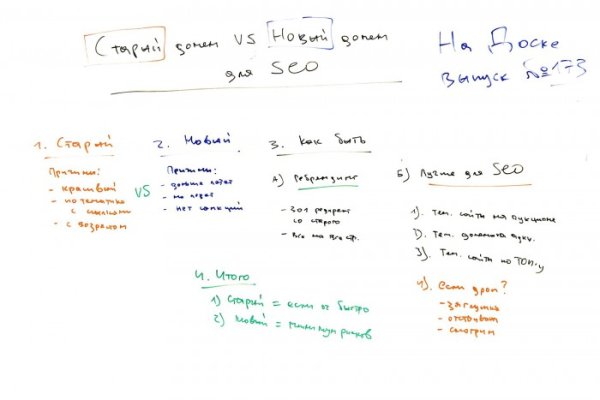 Старый домен VS Новый домен
для SEO
На Доске
выпуск №173
1. Старый
Причины:
- красивый
- по тематике
с ссылками
- с возрастом
VS
2. Новый
Причины:
- дольше
- нет санкций
3. Как быть
А) Ребрендинг
- 301 редирект
со старого
- Все на все стр.
Б) Лучше для SEO
1). Тем. сайты на аукционе
2). Тем. домены аукц.
3). Тем. сайты по ТОП-у
4). если дроп?
- загрузка
- отстойник
- смотрим
4. Итого
1) Старый = если оч быстро
2) Новый = минимум рисков